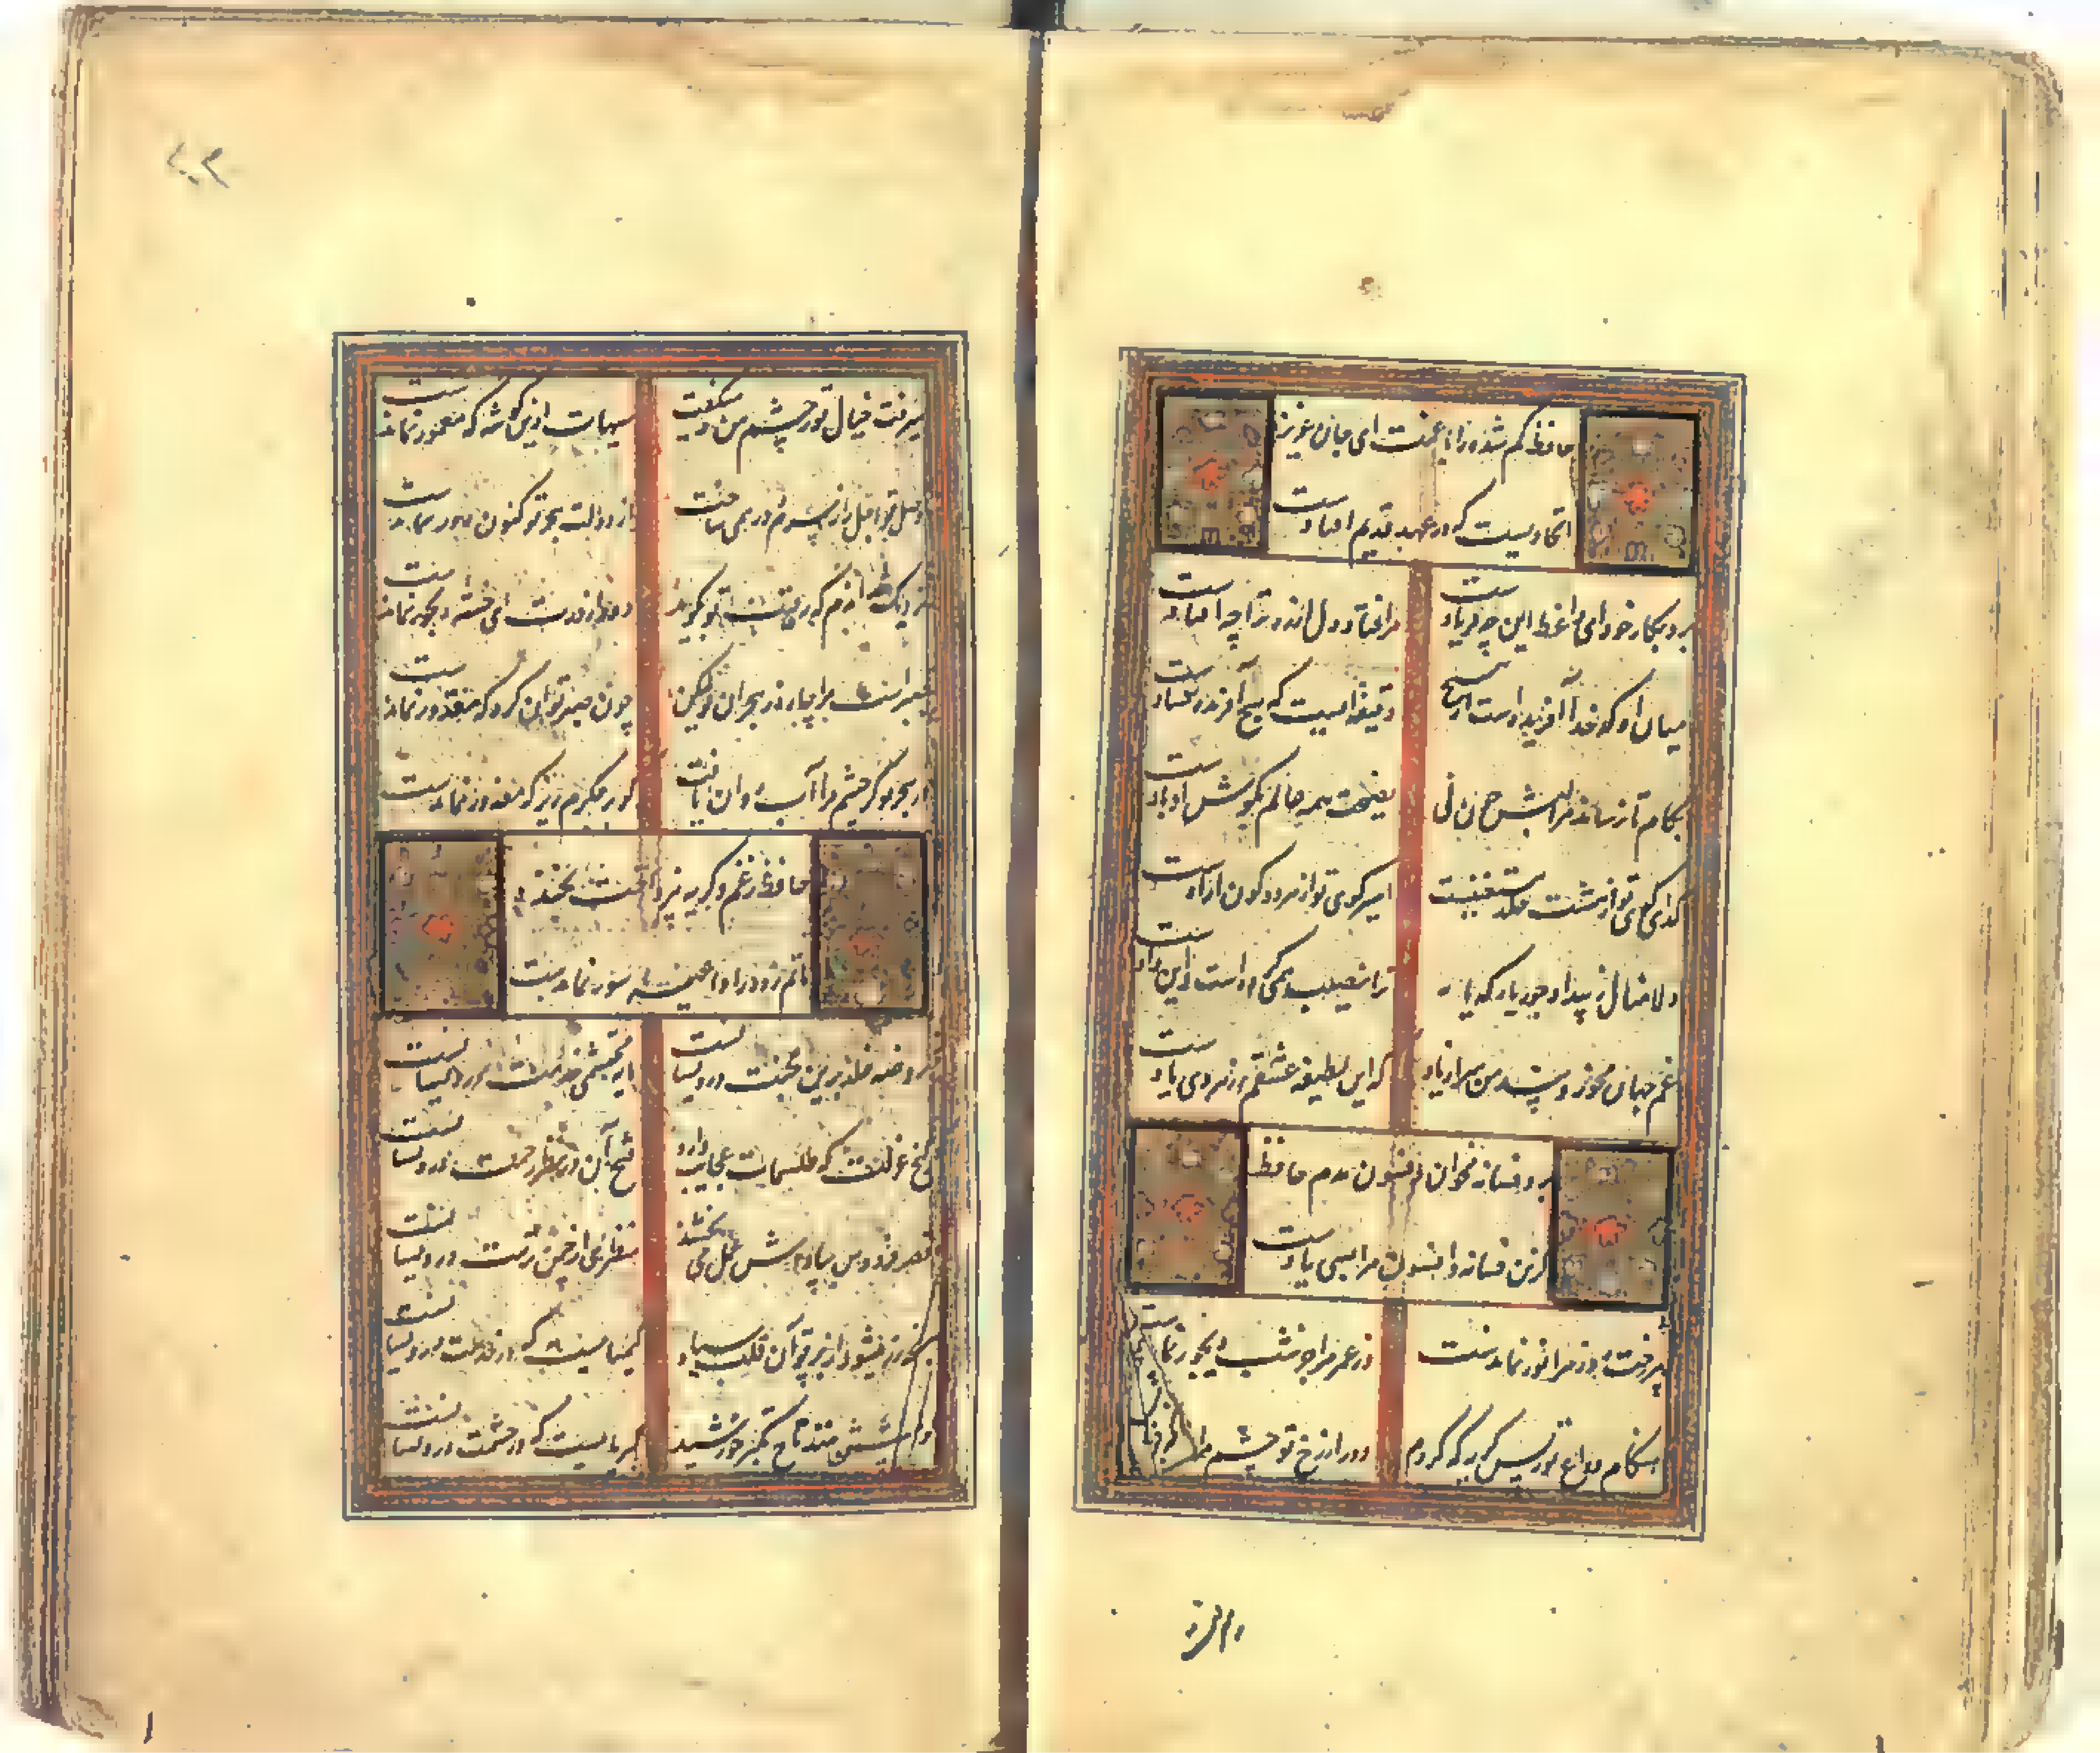 حافظ گم شده را با غمت ای جان عزیز
اتحادیست که در عهد قدیم افتادست
برو بکار خود ای واعظ این چه فریادست
مرا فتاد دل از ره ترا چه افتادست
میان او که خدا آفریده است از هیچ
دقیقه ایست که هیچ آفریده نگشادست
بکام تا نرساند مرا لبش چون نی
نصیحت همه عالم بگوش او بادست
گدای کوی تو از هشت خلد مستغنیست
اسیر کوی تو از هر دو کون آزادست
دلا منال ز بیداد جور یار که یار
ترا نصیب همی کرده است و این دادست
غم جهان مخور و پند من مبر از یاد
که این لطیفه عشقم ز رهروی یادست
برو فسانه مخوان و فسون مدم حافظ
کزین فسانه و افسون مرا بسی یادست
بی مهر رخت روز مرا نور نماندست
وز عمر مرا جز شب دیجور نماندست
هنگام وداع تو ز بس گریه که کردم
دور از رخ تو چشم مرا نور نماندست
میرفت خیال تو ز چشم من و میگفت
هیهات ازین گوشه که معمور نماندست
وصل تو اجل را ز سرم دور همی داشت
از دولت هجر تو کنون دور نماندست
نزدیک شد آن دم که رقیب تو بگوید
دور از درت ای خسته رنجور نماندست
صبرست مرا چاره ز هجران تو لیکن
چون صبر توان کرد که مقدور نماندست
در هجر تو گر چشم مرا آب روانست
گو خون جگر ریز که معذور نماندست
حافظ ز غم و گریه نپرداخت بخنده
ماتم زده را داعیه سور نماندست
روضه خلد برین خلوت درویشانست
مایه محتشمی خدمت درویشانست
گنج عزلت که طلسمات عجایب دارد
فتح آن در نظر رحمت درویشانست
قصر فردوس که
منظری از چمن نزهت درویشانست
آنچه زر میشود از پرتو آن قلب سیاه
کیمیاییست که در خدمت درویشانست
وانکه پیشش بنهد تاج تکبر خورشید
کبریاییست که در حشمت درویشانست